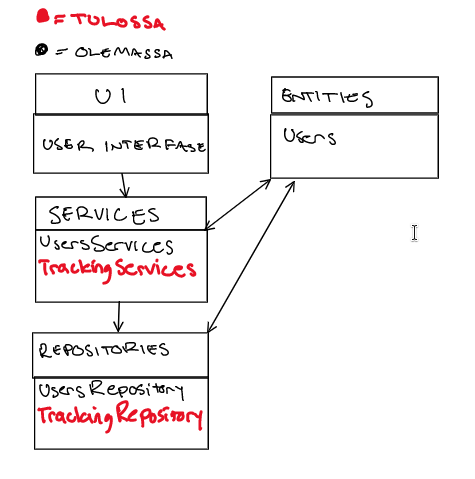 = TULOSSA
= OLEMASSA
UI
USER INTERFASE
ENTITIES
Users
SERVICES
UsersServices
TrackingServices
REPOSITORIES
UsersRepository
TrackingRepository